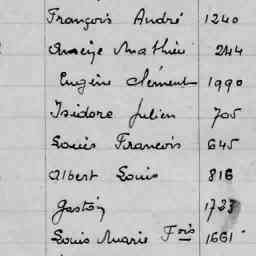 François André 1240
Mathieu 244
Eugène Clément 1990
Isidore Julien 705
Louis Francois 645
Albert Louis 816
Gaston 1723
Louis Marie Fois 1661